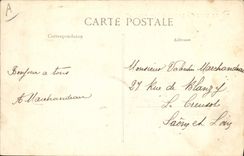 A
CARTE POSTALE
Correspondance
Adresse
Bonjour a tous
A Marchandeau
Monsieur Valentin Marchandeau
27 Rue de Blanzy
Le Creusot
Saône et Loire